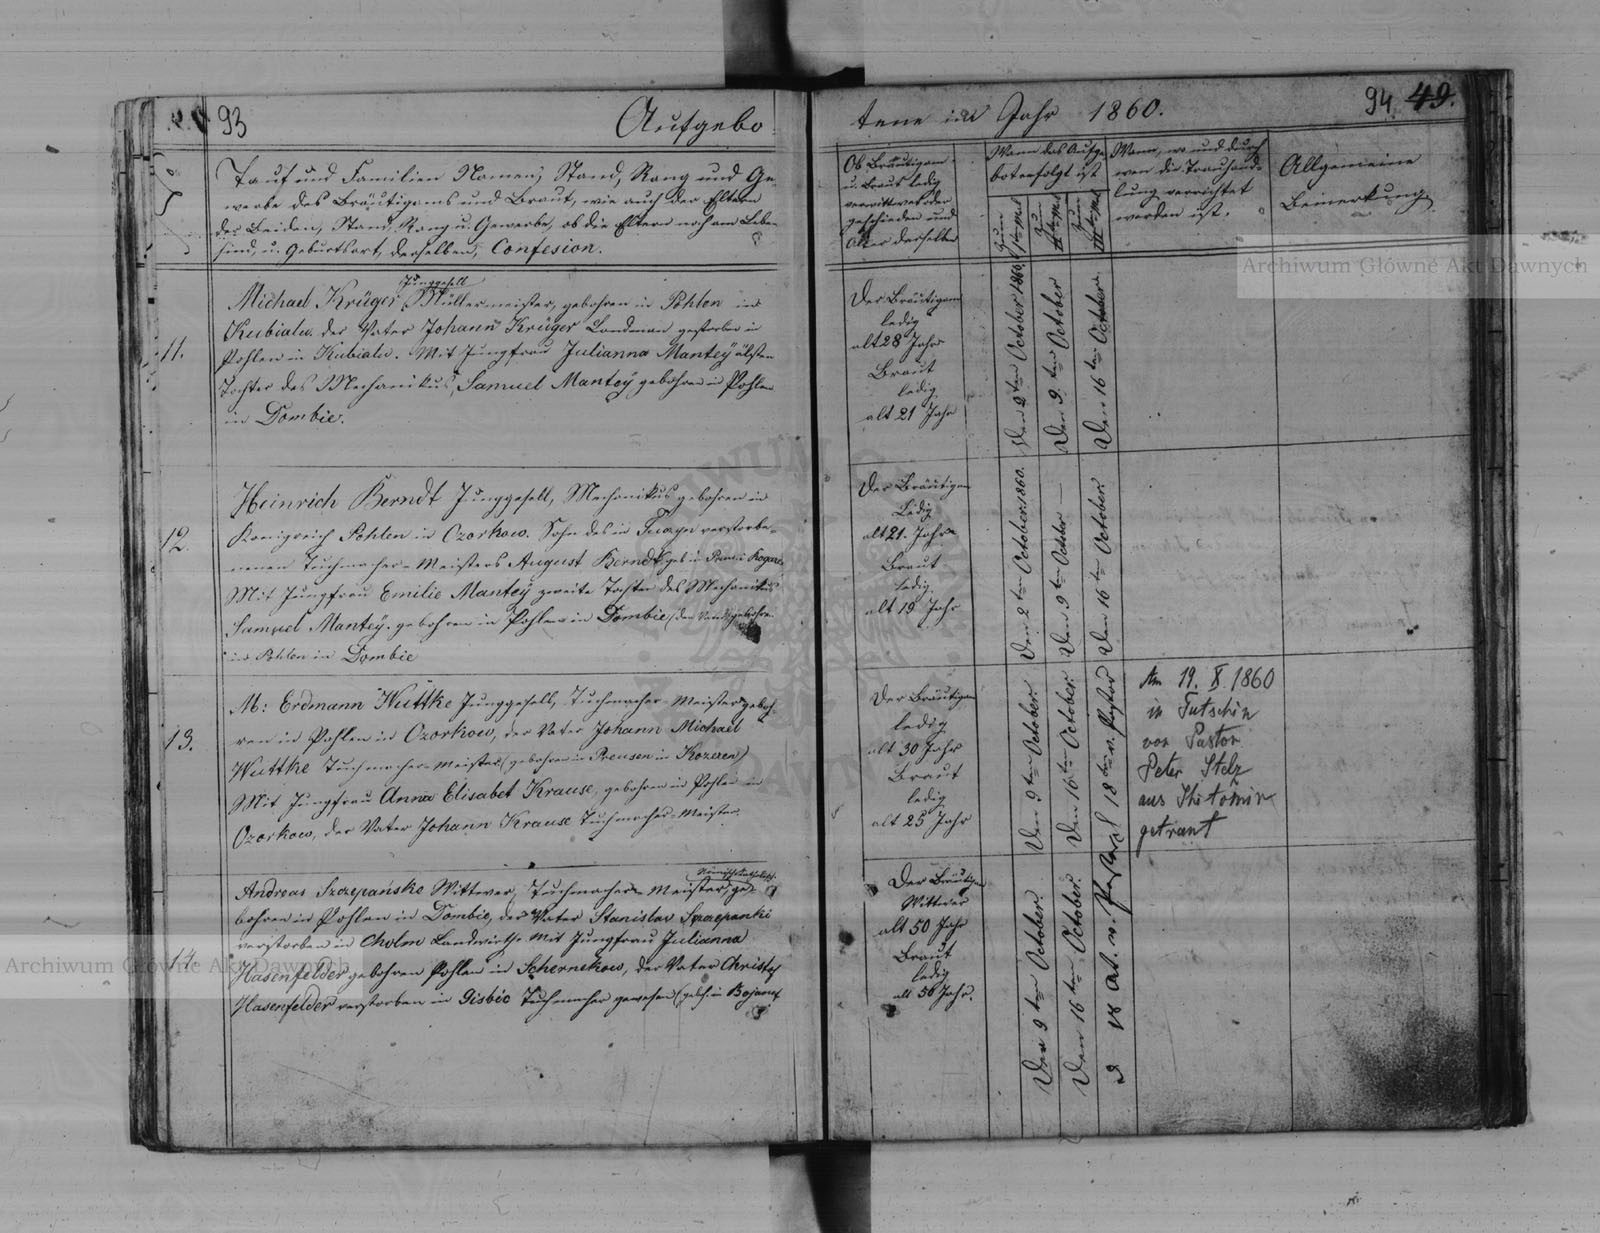 93
Aufgebo
Tauf und Familien Namen, Stand, Rang und Ge-
werbe des Bräutigams und Braut, wie auch der Eltern
der Beiden, Stand, Rang u. Gewerbe, ob die Eltern noch am Leben
sind, u. Geburtsort derselben, Confesion.
11.
Junggesell
Michael Krüger Müllermeister, gebohren in Pohlen in
Kubialu. der Vater Johann Krüger Landman gestorben in
Pohlen in Kubialu. Mit Jungfrau Julianna Manteÿ älsten
Tochter des Mechanikus, Samuel Manteÿ gebohren in Pohlen
in Dombie.
12.
Heinrich Berndt Junggesell, Mechanikus gebohren in
Konigreich Pohlen in Ozorkow. Sohn des in verstorbe-
nenen Tuchmacher-Meisters August Berndt (geb in
Mit Jungfrau Emilie Manteÿ zweite Tochter des Mechanikus
Samuel Manteÿ. gebohren in Pohlen in Dombie
in Pohlen in Dombie
13.
M: Erdmann Wuttke Junggesell, Tuchmacher-Meister geboh-
ren in Pohlen in Ozorkow, der Vater Johann Michael
Wuttke Tuchmacher-Meister (gebohren in Preusen in
Mit Jungfrau Anna Elisabet Krause, gebohren in Pohlen in
Ozorkow, der Vater Johann Krause Tuchmacher-Meister.
14.
Andreas Szczepańske Wittwer, Tuchmacher-Meister ge-
bohren in Pohlen in Dombie, der Vater Stanislav Szczepanki
verstorben in Cholm Landwirth. Mit Jungfrau Julianna
Hasenfelder gebohren Pohlen in Schernekow, der Vater Christof
Hasenfelder verstorben in Gisbic Tuchmacher gewesen
94 49.
tene im Jahr 1860.
Ob Bräutigam
u. Braut ledig
verwittwet oder
geschieden und
Alter derselben
Wann das Aufge
bot erfolgt ist
Zum I-ten mal
Zum II-ten mal
Zum III-ten mal
Wann, wo und durch
wen die Trauhand-
lung verrichtet
worden ist.
Allgemeine
Bemerkung
Der Bräutigam
ledig
alt 28 Jahr
Braut
ledig
alt 21 Jahr
Den 2ten October 1860.
Den 9ten October
Den 16ten October.
Der Bräutigam
Ledig
alt 21. Jahr
Braut
ledig.
alt 19 Jahr
Den 2ten October 1860.
Den 9ten October
Den 16ten October.
Der Bräutigam
ledig
alt 30 Jahr
Braut
ledig
alt 25 Jahr
Den 9ten October.
Den 16ten October.
Am 19. X 1860
in Tutschin
von Pastor
Peter Stelz
aus Shitomir
getraut
Der Bräutigam
Wittwer
alt 50 Jahr
Braut
ledig
alt 50 Jahr.
Den 9ten October.
Den 16ten October.
Archiwum Główne Akt Dawnych
Archiwum Główne Akt Dawnych